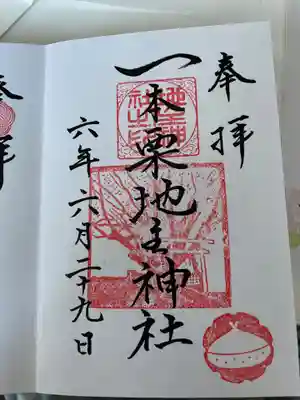 奉拝
一本栗地主神社
六年六月二十九日